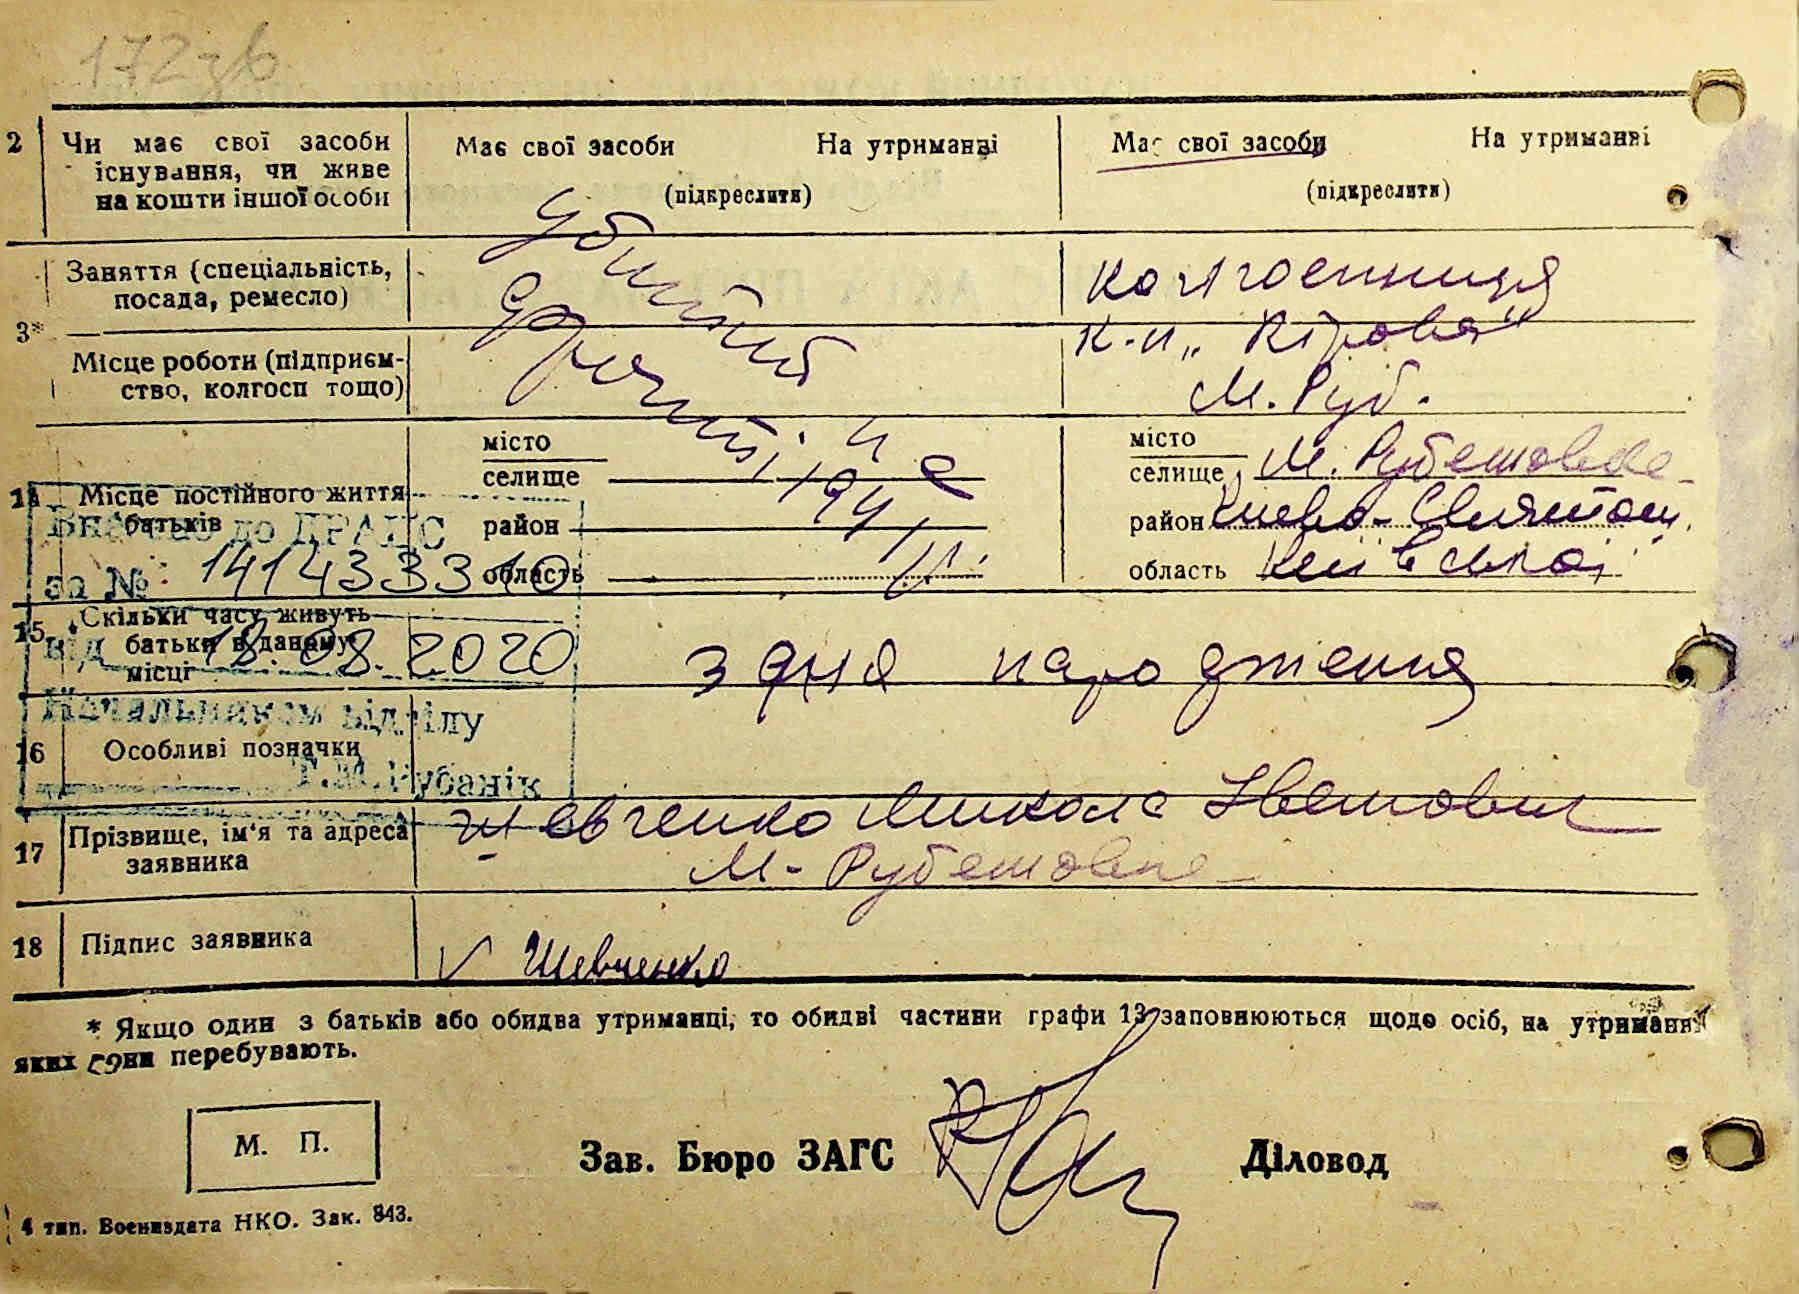 172зв
2 Чи має свої засоби існування, чи живе на кошти іншої особи
Має свої засоби На утриманні
(підкреслити)
Має свої засоби На утриманні
(підкреслити)
3* Заняття (спеціальність, посада, ремесло)
Убитий
колгоспниця
Місце роботи (підприєм-
ство, колгосп тощо)
к-п „Кірова"
М. Руб.
14 Місце постійного життя батьків
місто
селище
район
область
місто
селище М. Рубежовка
район Києво-Святош.
область Київської
Внесено до ДРАЦС
за № 1414333310
від 18.08.2020
Начальником відділу
Рубанік
15 Скільки часу живуть батьки в даному місці
з дня народження
16 Особливі позначки
17 Прізвище, ім'я та адреса заявника
Шевченко Микола Іванович
М-Рубежовка
18 Підпис заявника
V Шевченко
* Якщо один з батьків або обидва утриманці, то обидві частини графи 13 заповнюються щодо осіб, на утриманні
яких вони перебувають.
М. П.
Зав. Бюро ЗАГС
Діловод
4 тип. Воениздата НКО. Зак. 843.